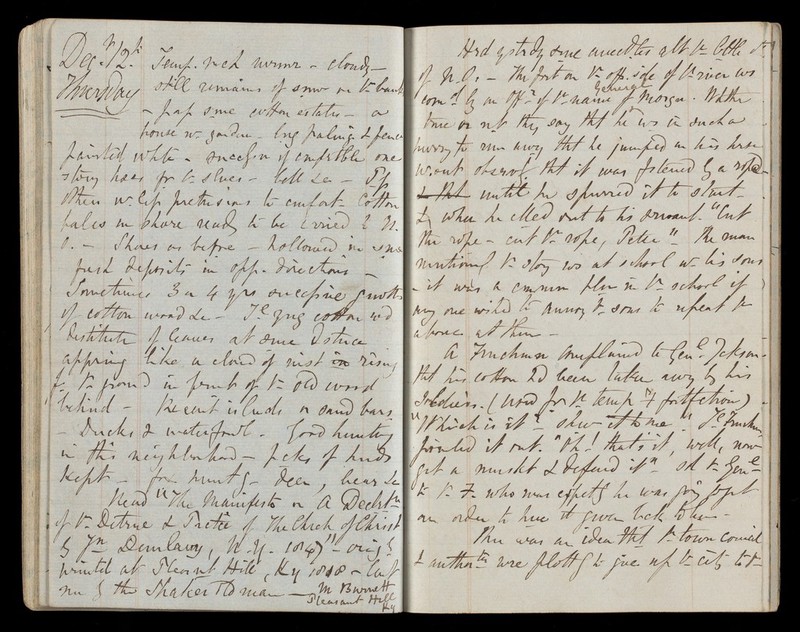 Decr 12th Temp. much warmer - cloudy -
Thursday still remains of snow on ye bank
- pass some cotton estates - a
house w. garden - long palings & fence
painted white - succession of comfortable one
story hses for ye slaves - bell &c -
others w. less pretensions to comfort. Cotton
bales on shore ready to be carried to N.
O. - Shores as before - hollowed in some
fresh deposits in opp. directions -
Sometimes 3 or 4 yrs successive growths
of cotton wood &c - Ye yng cotton wd
destitute of leaves at some distnce
appring like a cloud of mist rising
fr. ye ground in front of ye old wood
behind - Recent islands or sand bars
- Ducks & waterfowl. Good hunting
in this neighborhood - pcks of hnds
kept - for huntg - deer, bear &c
Read "The Manifesto or A Declrtn
of ye Dctrne & Prctce of The Chrch of Christ
by Jn Dunlavy, N.Y. 1847" - origy
printed at Pleasnt Hill, Ky 1818 -
me by the Shaker old man - M Burnett
Pleasant Hill
Ky
Hrd ystrdy sme anecdtes abt ye bttle
of N.O. - The fort on ye opp. side of ye river ws
comd by an Offr of ye name of General Morgan. Whthr
true or not they say tht he ws in such a
hurry to run away tht he jumped on his horse
wout observg tht it was fstened by a rope
until he spurred it to start -
& when he clled out to his servant. "Cut
the rope - cut ye rope, Peter". The man
mentiong ye story ws at school w his sons
- it was a common plan in ye school if
any one wished to annoy ye sons to repeat ye
above at them -
A Frnchmn complained to Genl Jckson
tht his cotton hd been taken awy by his
soldiers. (used for ye temp fortfction)
"Which is it" - shew it to me." Ye Frnchmn
pointed it out. "Oh! that's it, well, now
get a musket & defend it" sd ye Genl
to ye F. who was expctg he was gong to get
an order to have it given bck to him -
There was an idea tht ye town council
& authorts were plottg to give up ye city to ye